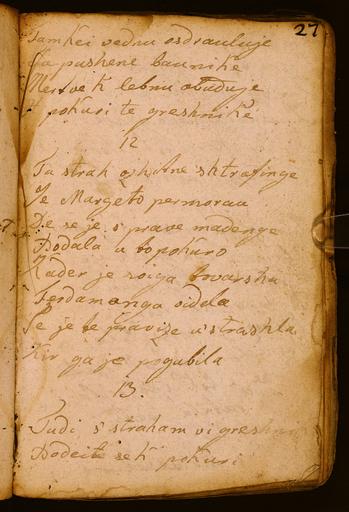 27
Tamkei vednu osdrauluje
Ta pushene baunike
Mertve k lebnu obuduje
K pokuri te greshnike
12
Ta strah ozhitne shtrafinge
Je Margeto permorau
De se je s prave madenge
Podala u to pokuro
Kader je soiga tovarsha
Ferdamanga vidla
Se je te pravize vstrashla
Kir ga je pogubila
13.
Tudi s straham vi
Podeite se k pokuri